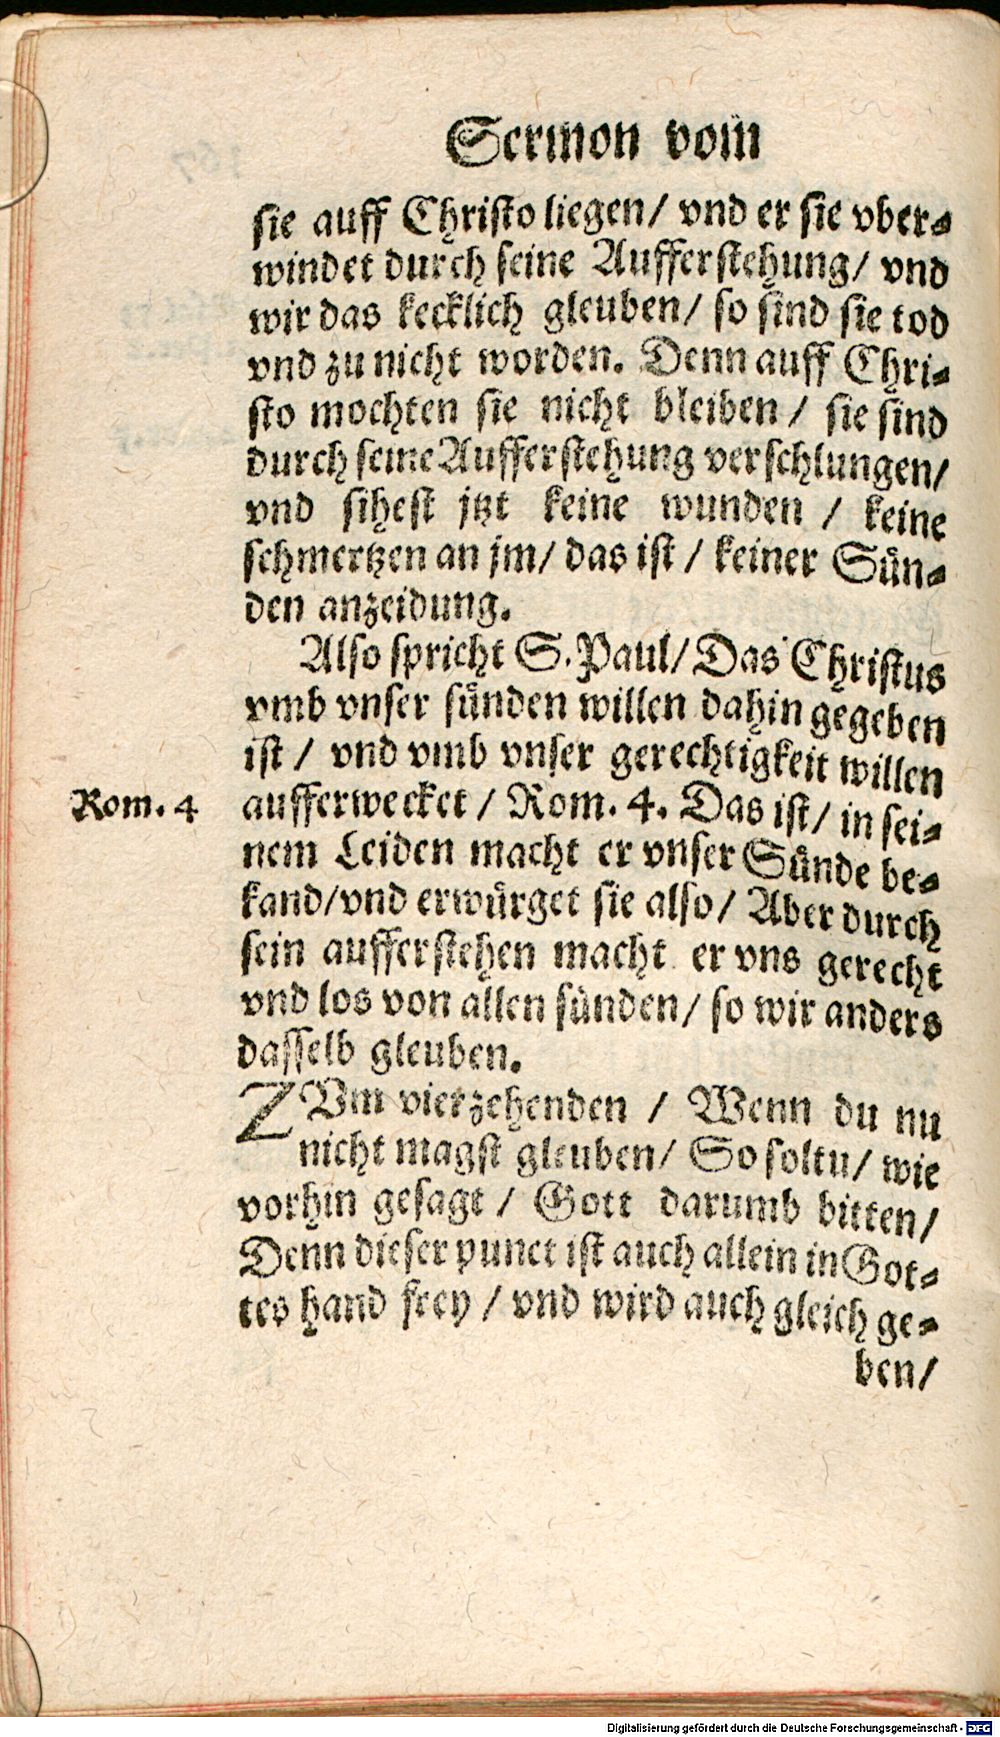 Sermon vom
sie auff Christo liegen/ vnd er sie vber-
windet durch seine Aufferstehung/ vnd
wir das kecklich gleuben/ so sind sie tod
vnd zu nicht worden. Denn auff Chri-
sto mochten sie nicht bleiben / sie sind
durch seine Aufferstehung verschlungen/
vnd sihest jtzt keine wunden / keine
schmertzen an jm/ das ist / keiner Sün-
den anzeidung.
Also spricht S. Paul/ Das Christus
vmb vnser sünden willen dahin gegeben
ist / vnd vmb vnser gerechtigkeit willen
Rom. 4
aufferwecket / Rom. 4. Das ist/ in sei-
nem Leiden macht er vnser Sünde be-
kand/vnd erwürget sie also/ Aber durch
sein aufferstehen macht er vns gerecht
vnd los von allen sünden/ so wir anders
dasselb gleuben.
ZVm vierzehenden / Wenn du nu
nicht magst gleuben/ So soltu/ wie
vorhin gesagt / Gott darumb bitten/
Denn dieser punct ist auch allein in Got-
tes hand frey / vnd wird auch gleich ge-
ben/
Digitalisierung gefördert durch die Deutsche Forschungsgemeinschaft - DFG